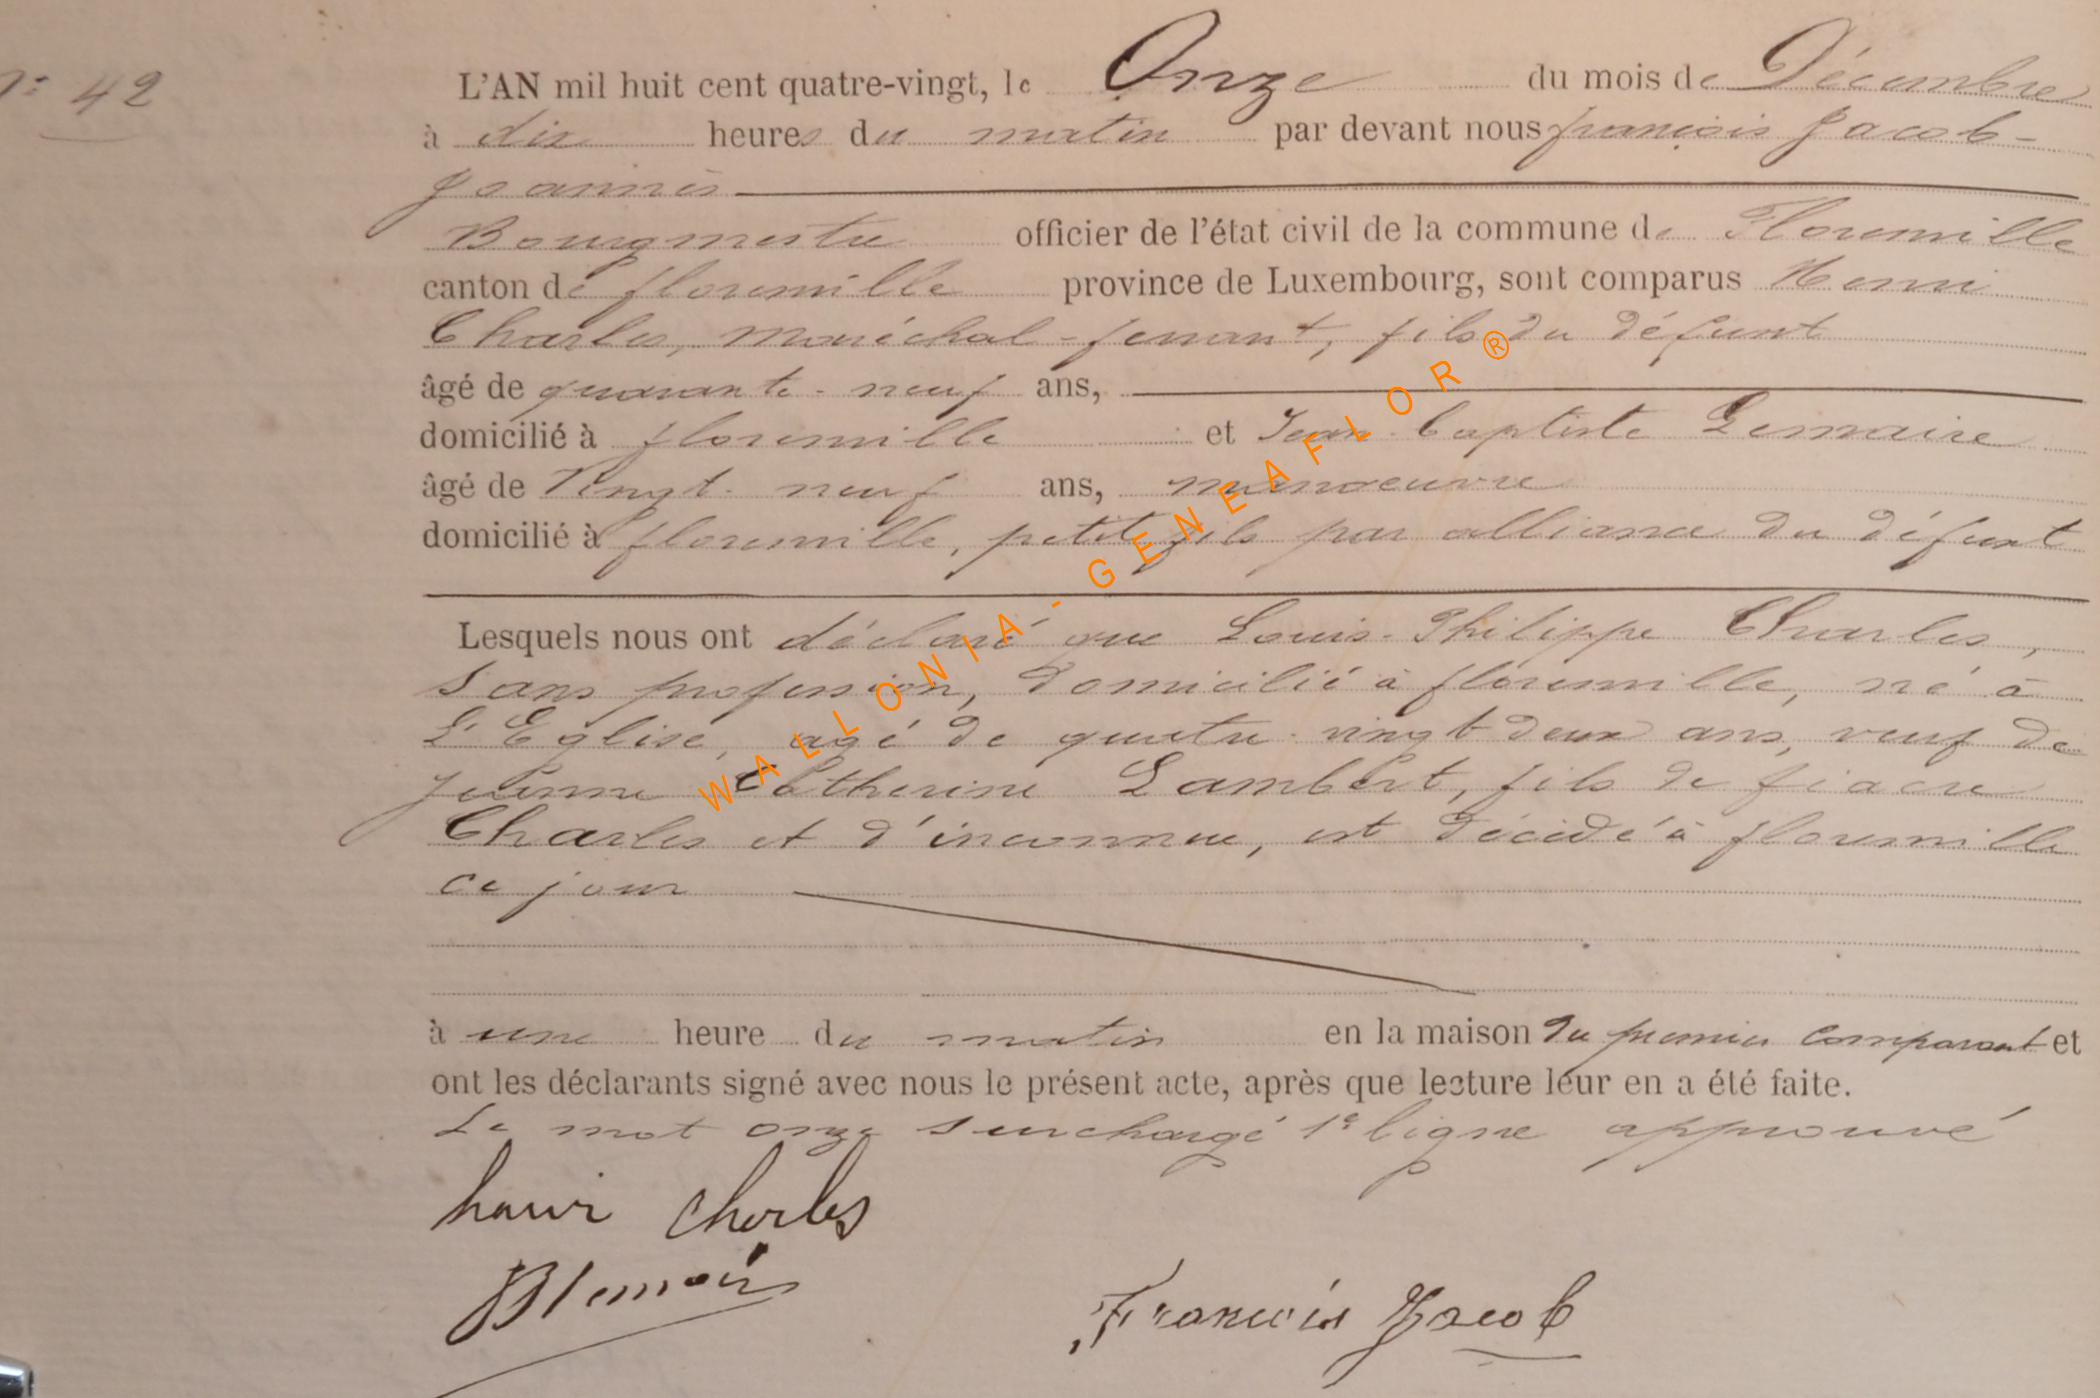 N° 42
L'AN mil huit cent quatre-vingt, le Onze du mois de Décembre
à dix heures du matin par devant nous françois Jacob-
Joannès
Bourgmestre officier de l'état civil de la commune de Florenville
canton de florenville province de Luxembourg, sont comparus Henri
Charles, maréchal-ferrant, fils du défunt
âgé de quarante-neuf ans,
domicilié à florenville et Jean-Baptiste Lemaire
âgé de Vingt-neuf ans, manoeuvre
domicilié à florenville, petit fils par alliance du défunt
Lesquels nous ont déclaré que Louis-Philippe Charles,
sans profession, domicilié à florenville, né à
L'Eglise, agé de quatre-vingt deux ans, veuf de
Jeanne Catherine Lambert, fils de fiacre
Charles et d'inconnue, est décédé à florenville
ce jour
à une heure du matin en la maison du premier comparant et
ont les déclarants signé avec nous le présent acte, après que lecture leur en a été faite.
Le mot onze surchargé 1e ligne approuvé
henri charles
JBlemaire
François Jacob
WALLONIA-GENEAFLOR®